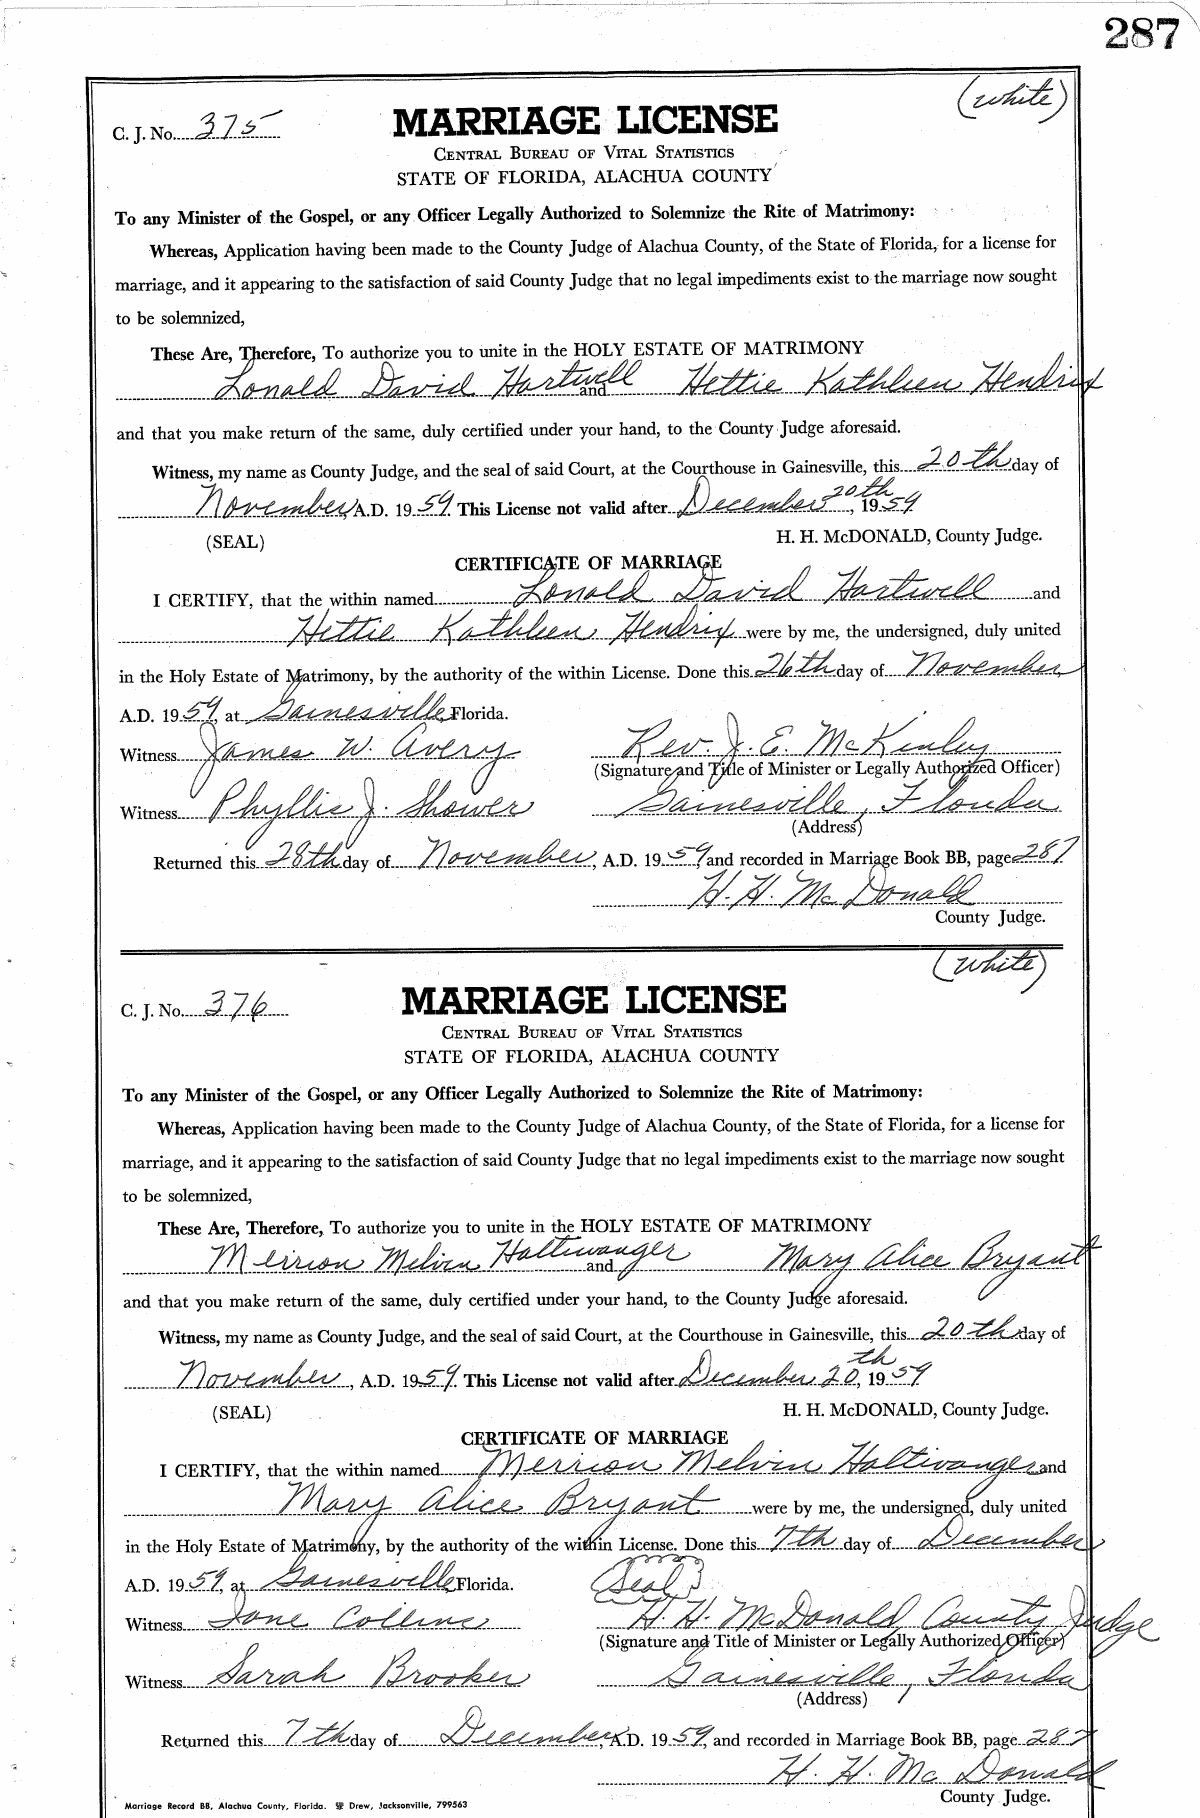 287
(white)
C. J. No. 375
MARRIAGE LICENSE
CENTRAL BUREAU OF VITAL STATISTICS
STATE OF FLORIDA, ALACHUA COUNTY
To any Minister of the Gospel, or any Officer Legally Authorized to Solemnize the Rite of Matrimony:
Whereas, Application having been made to the County Judge of Alachua County, of the State of Florida, for a license for
marriage, and it appearing to the satisfaction of said County Judge that no legal impediments exist to the marriage now sought
to be solemnized,
These Are, Therefore, To authorize you to unite in the HOLY ESTATE OF MATRIMONY
Lonald David Hartwell and Hettie Kathleen Hendrix
and that you make return of the same, duly certified under your hand, to the County Judge aforesaid.
Witness, my name as County Judge, and the seal of said Court, at the Courthouse in Gainesville, this 20th day of
November, A.D. 1959. This License not valid after December 20th, 1959
(SEAL) H. H. McDONALD, County Judge.
CERTIFICATE OF MARRIAGE
I CERTIFY, that the within named Lonald David Hartwell and
Hettie Kathleen Hendrix were by me, the undersigned, duly united
in the Holy Estate of Matrimony, by the authority of the within License. Done this 26th day of November,
A.D. 1959, at Gainesville, Florida.
Witness James W. Avery Rev. J. E. McKinley
(Signature and Title of Minister or Legally Authorized Officer)
Witness Phyllis J. Shower Gainesville, Florida
(Address)
Returned this 28th day of November, A.D. 1959, and recorded in Marriage Book BB, page 287
H. H. McDonald
County Judge.
(white)
C. J. No. 376
MARRIAGE LICENSE
CENTRAL BUREAU OF VITAL STATISTICS
STATE OF FLORIDA, ALACHUA COUNTY
To any Minister of the Gospel, or any Officer Legally Authorized to Solemnize the Rite of Matrimony:
Whereas, Application having been made to the County Judge of Alachua County, of the State of Florida, for a license for
marriage, and it appearing to the satisfaction of said County Judge that no legal impediments exist to the marriage now sought
to be solemnized,
These Are, Therefore, To authorize you to unite in the HOLY ESTATE OF MATRIMONY
Merrion Melvin Haltiwanger and Mary Alice Bryant
and that you make return of the same, duly certified under your hand, to the County Judge aforesaid.
Witness, my name as County Judge, and the seal of said Court, at the Courthouse in Gainesville, this 20th day of
November, A.D. 1959. This License not valid after December 20th, 1959
(SEAL) H. H. McDONALD, County Judge.
CERTIFICATE OF MARRIAGE
I CERTIFY, that the within named Merrion Melvin Haltiwanger and
Mary Alice Bryant were by me, the undersigned, duly united
in the Holy Estate of Matrimony, by the authority of the within License. Done this 7th day of December,
A.D. 1959, at Gainesville, Florida. (Seal)
Witness Jane Collins H. H. McDonald, County Judge
(Signature and Title of Minister or Legally Authorized Officer)
Witness Sarah Brooker Gainesville, Florida
(Address)
Returned this 7th day of December, A.D. 1959, and recorded in Marriage Book BB, page 287
H. H. McDonald
County Judge.
Marriage Record BB, Alachua County, Florida. Drew, Jacksonville, 799563